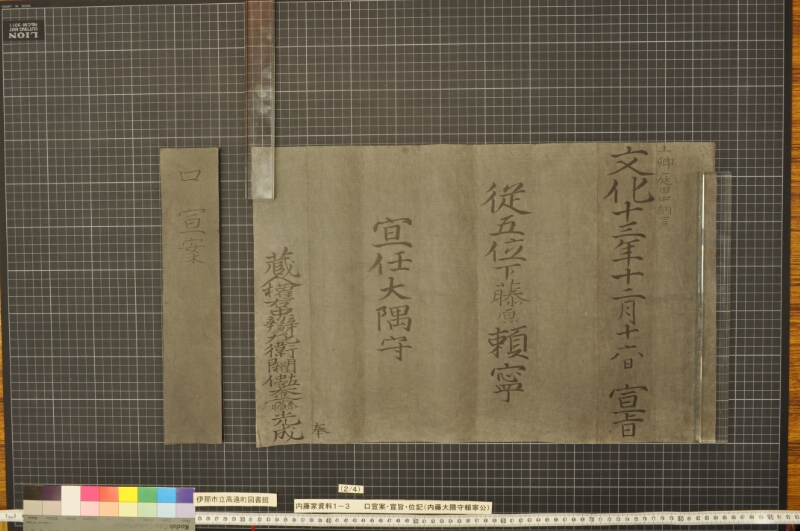 上卿 庭田中納言
文化十三年十二月十六日 宣旨
從五位下藤原頼寧
宣任大隅守
蔵人權右中辨左衛門權佐藤原光成 奉
口 宣案
伊那市立高遠町図書館
(2/4)
内藤家資料1-3 口宣案・宣旨・位記(内藤大隅守頼寧公)
LION